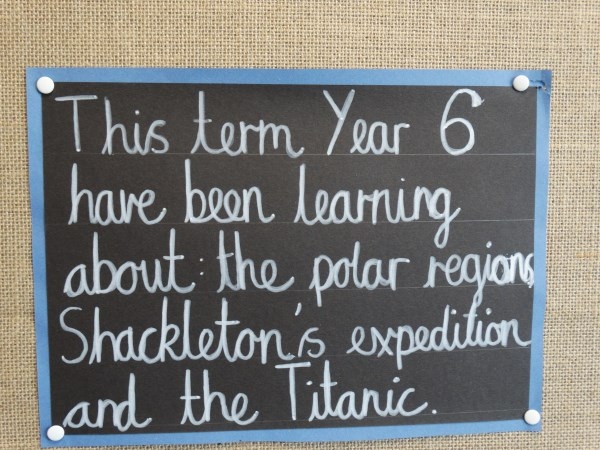 This term Year 6
have been learning
about: the polar regions
Shackleton's expedition
and the Titanic.